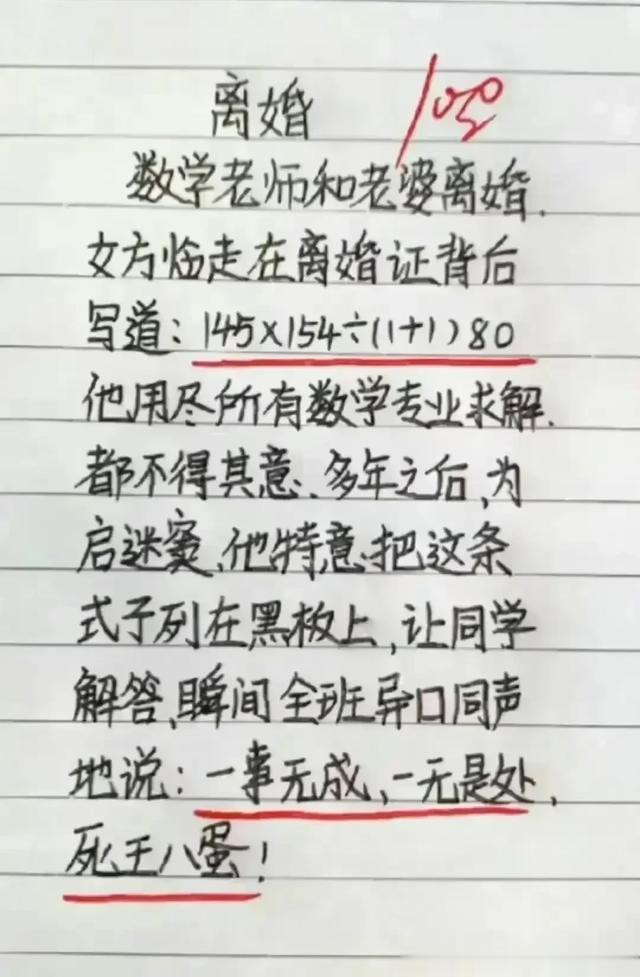 离婚 100
数学老师和老婆离婚.
女方临走在离婚证背后
写道：145×154÷(1+1)80
他用尽所有数学专业求解.
都不得其意、多年之后,为
启迷窦,他特意把这条
式子列在黑板上,让同学
解答,瞬间全班异口同声
地说：一事无成,一无是处,
死王八蛋！